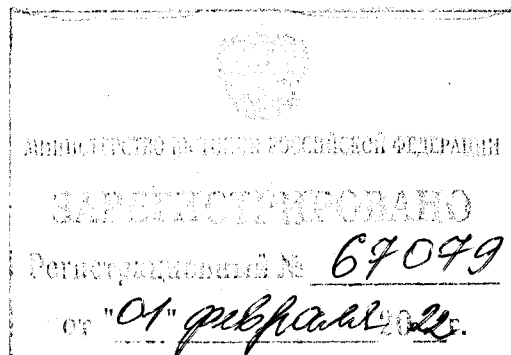 МИНИСТЕРСТВО ЮСТИЦИИ РОССИЙСКОЙ ФЕДЕРАЦИИ
ЗАРЕГИСТРИРОВАНО
Регистрационный № 67079
от "01" февраля 2022г.